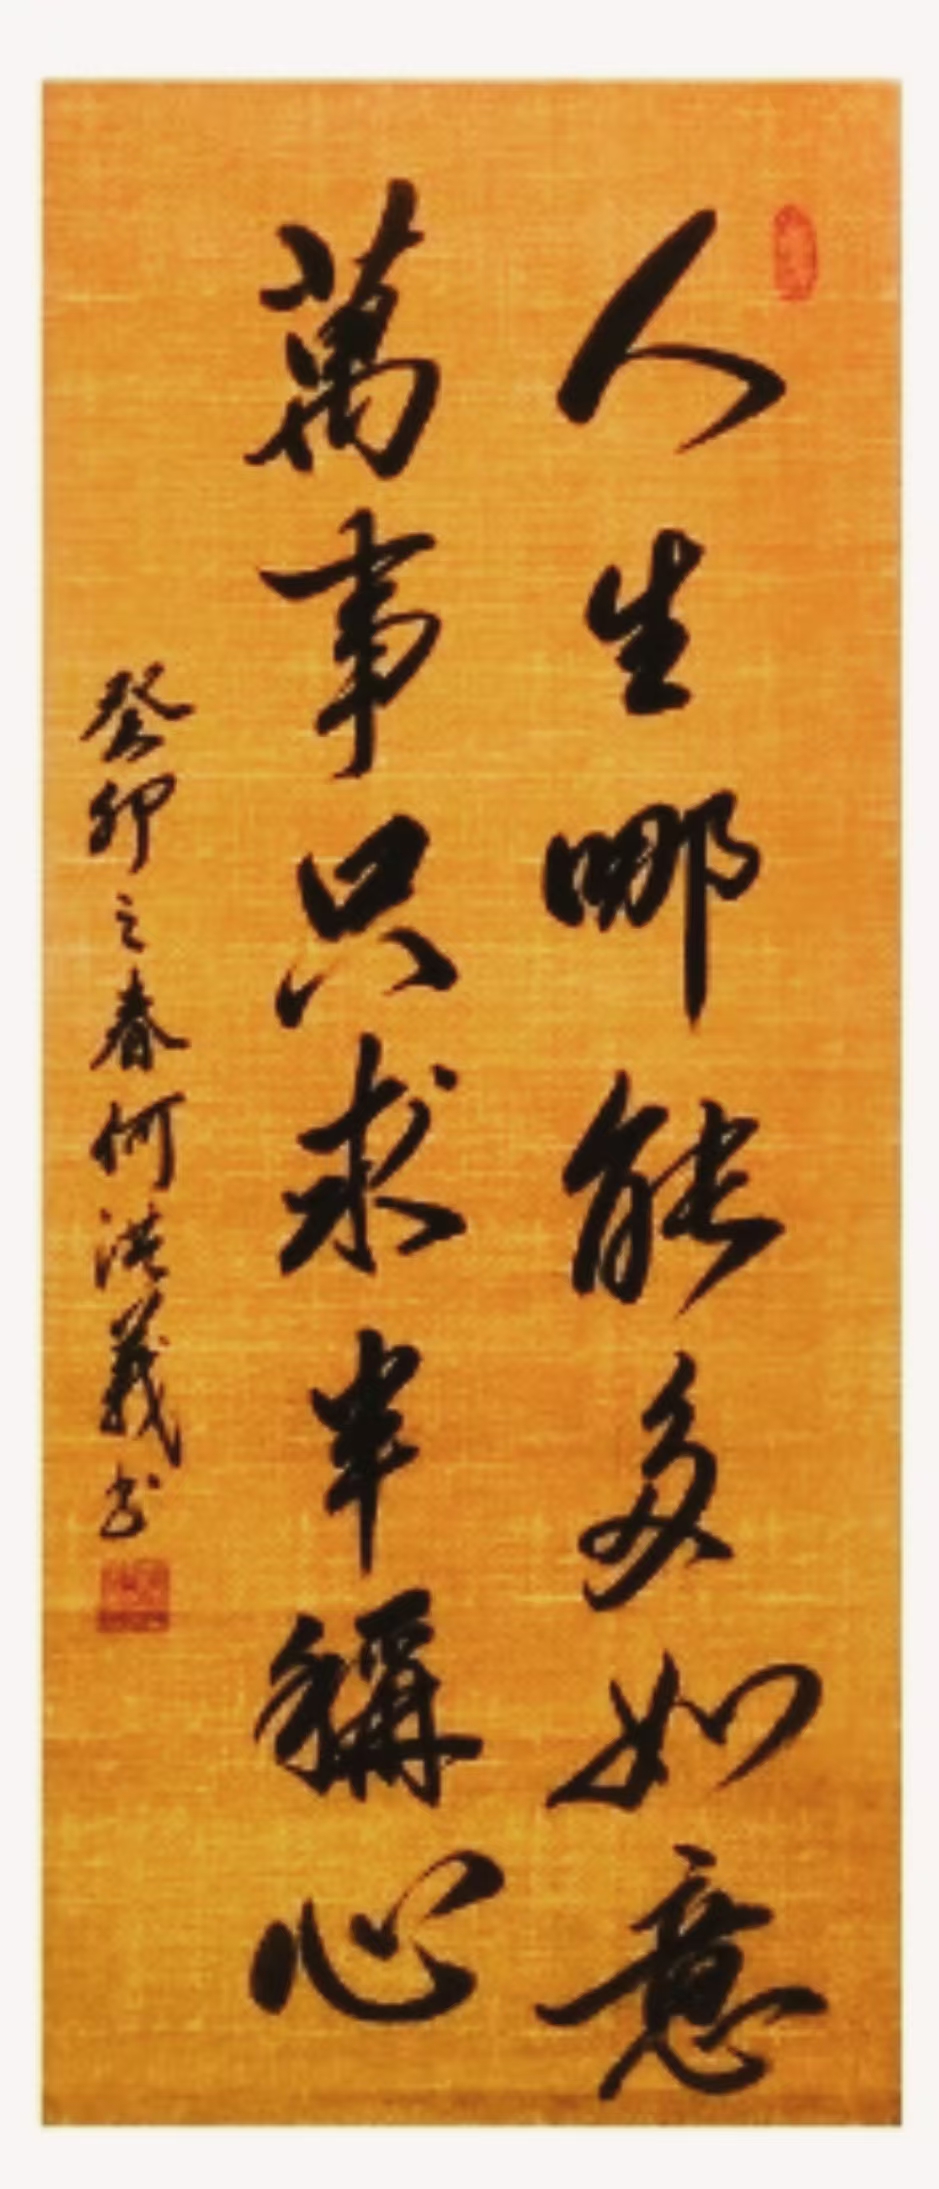 人生哪能多如意
萬事只求半稱心
癸卯之春何洪義書